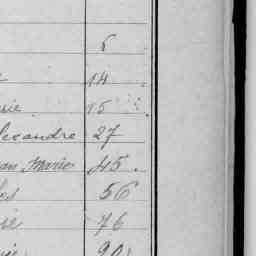 6
14
rie 15
lexandre 27
an Marie 45
los 56
rie 76
rie 90